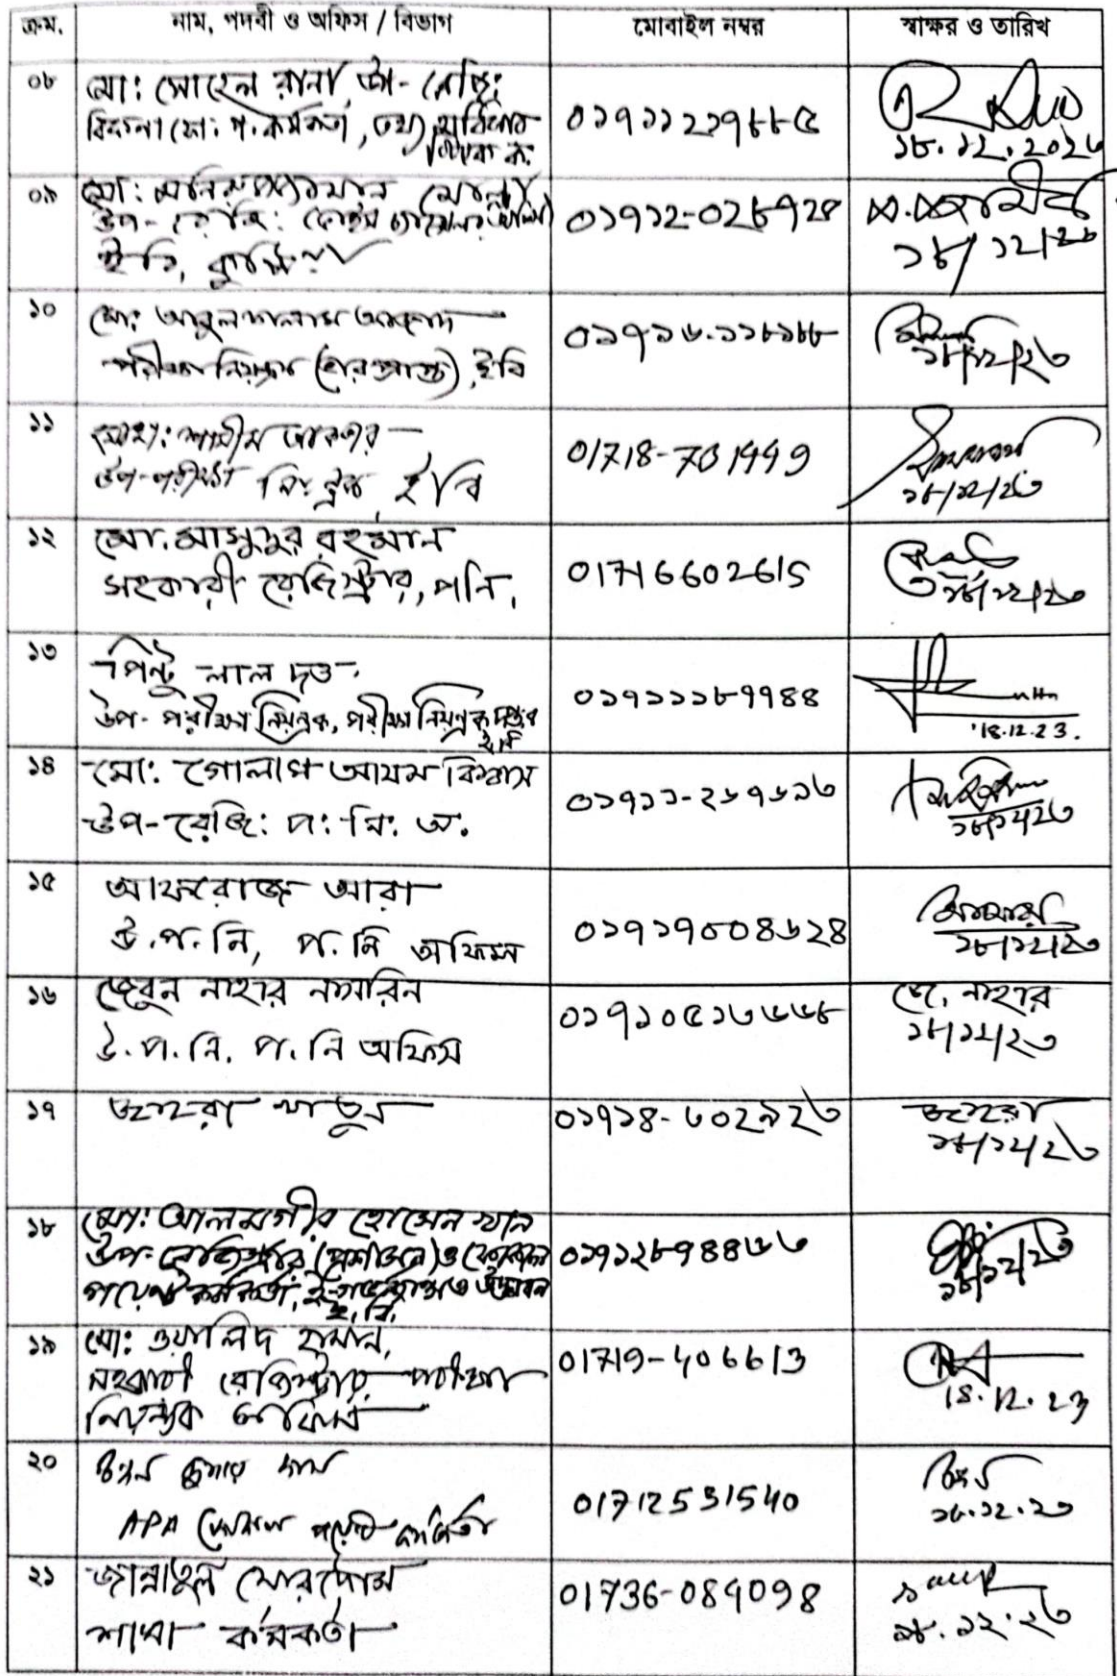 ক্রম.
নাম, পদবী ও অফিস / বিভাগ
মোবাইল নম্বর
স্বাক্ষর ও তারিখ
০৮
মো: সোহেল রানা, উপ-রেজি:
০১৭১১২১৭৮৮৫
১৮.১২.২০২৩
০৯
উপ-রেজি:
ইবি, কুষ্টিয়া
০১৭১২-০২৮৭২৪
১৮/১২/২৩
১০
মো: আবুল কালাম আজাদ
পরীক্ষা নিয়ন্ত্রক (ভারপ্রাপ্ত), ইবি
০১৭১৬-১১৮১৮৮
১৮/১২/২৩
১১
উপ-পরীক্ষা নিয়ন্ত্রক, ইবি
01718-701449
১৮/১২/২৩
১২
মো. মাসুদুর রহমান
সহকারী রেজিস্ট্রার, পনি,
01716602615
১৮/১২/২৩
১৩
পিন্টু লাল দত্ত
উপ-পরীক্ষা নিয়ন্ত্রক, পরীক্ষা নিয়ন্ত্রক দপ্তর
ইবি
০১৭১১১৮৭৭৪৪
18.12.23.
১৪
মো: গোলাম আযম বিশ্বাস
উপ-রেজি: প: নি: অ.
০১৭১১-২৬৭৬১৩
১৮/১২/২৩
১৫
আফরোজ আরা
উ.প.নি, প.নি অফিস
০১৭১৭০০৪৬২৪
১৮/১২/২৩
১৬
জেবুন নাহার নাসরিন
উ.প.নি. প.নি অফিস
০১৭১০৫১৩৬৬৮
জে. নাহার
১৮/১২/২৩
১৭
জহুরা খাতুন
০১৭১৪-৬০২৯২৩
জহুরা
১৮/১২/২৩
১৮
মো: আলমগীর হোসেন খান
উপ-রেজিস্ট্রার (প্রশাসন) ও ফোকাল
পয়েন্ট কর্মকর্তা, ই-গভর্ন্যান্স ও উদ্ভাবন
ই.বি.
০১৭১২৮৭৪৪৬৩
১৮/১২/২৩
১৯
মো: ওয়ালিদ হাসান,
সহকারী রেজিস্ট্রার, পরীক্ষা
নিয়ন্ত্রক অফিস
01719-406613
18.12.23
২০
কুমার দাস
APA ফোকাল পয়েন্ট কর্মকর্তা
01712531540
১৮.১২.২৩
২১
জান্নাতুল ফেরদৌস
শাখা কর্মকর্তা
01736-084098
১৮.১২.২৩